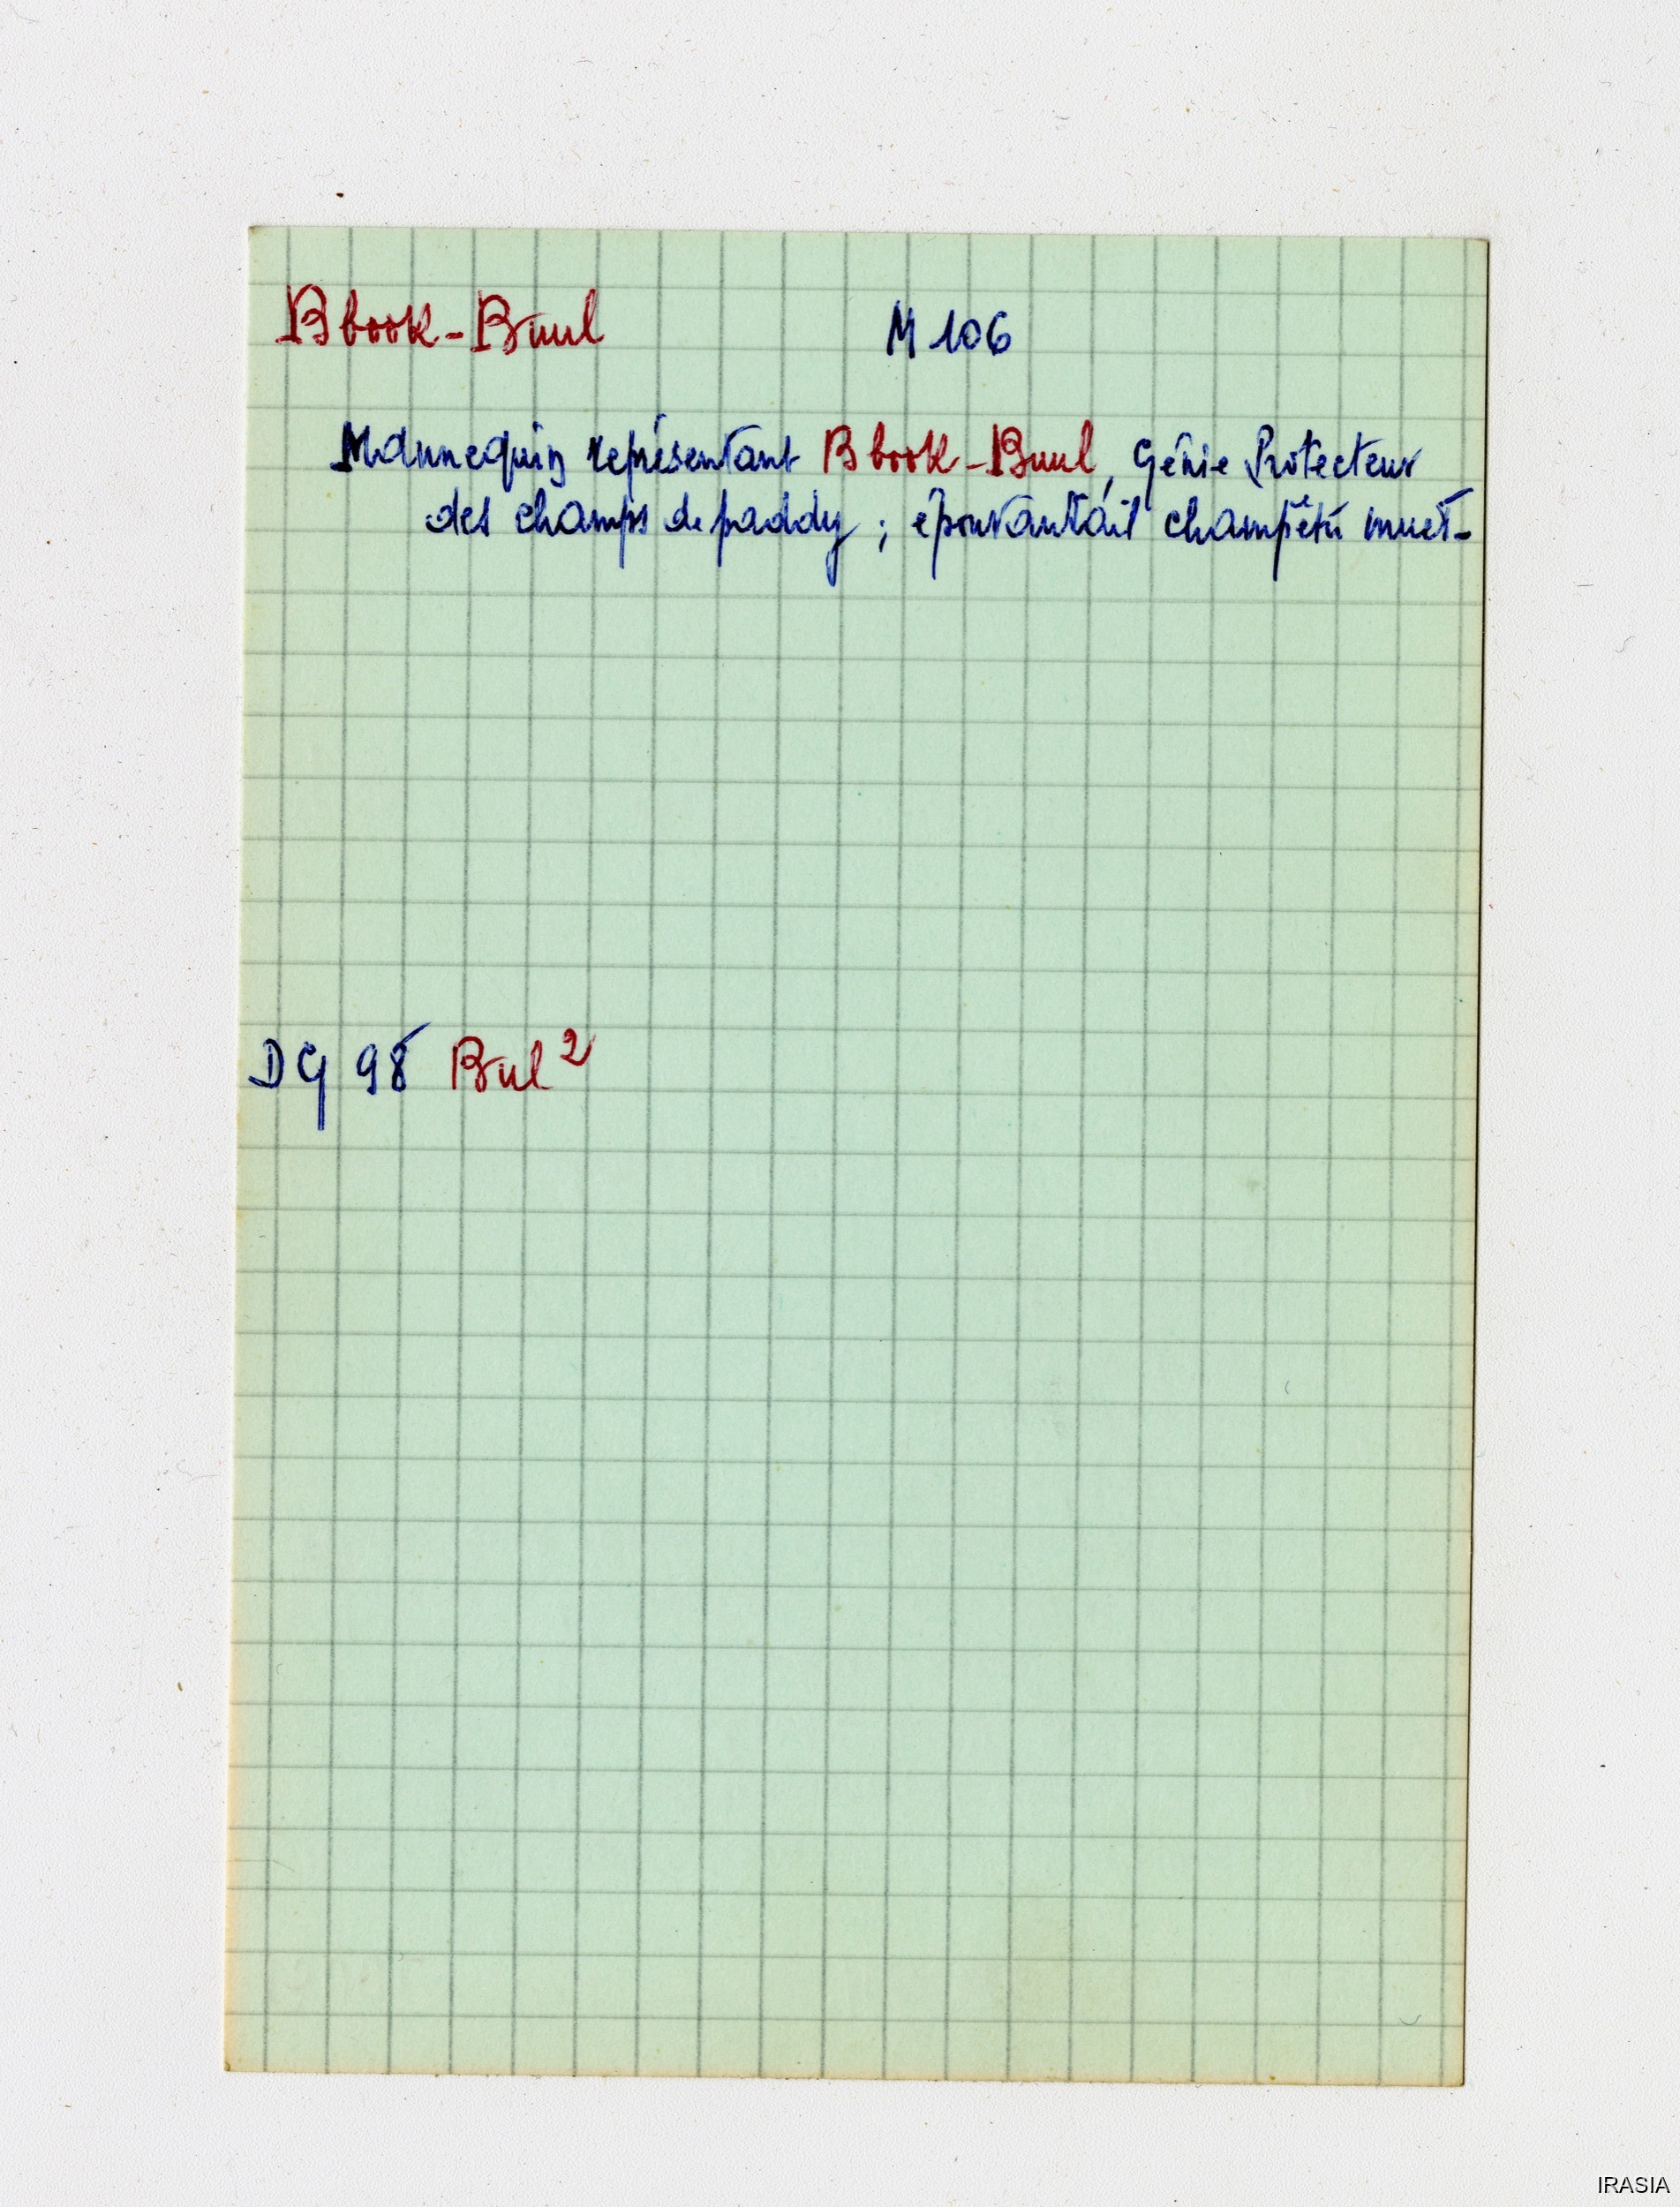 Bbook-Buul M 106
Mannequin représentant Bbook-Buul, Génie Protecteur
des champs de paddy ; épouvantail champêtre muet-
DG 98 Bul 2
IRASIA